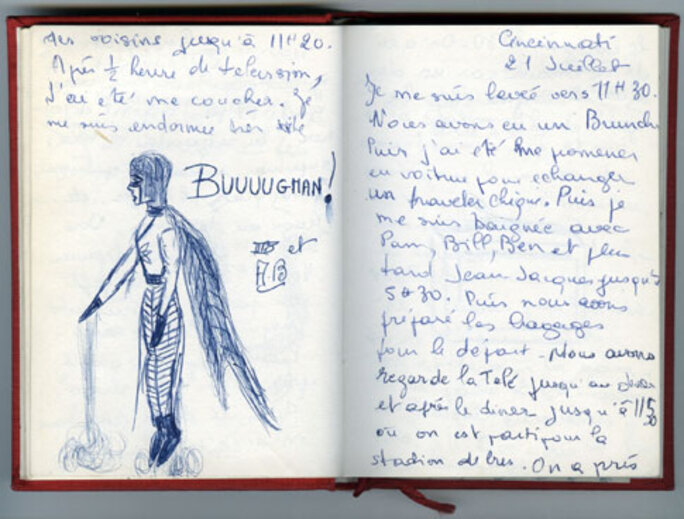 des voisins jusqu'à 11H20.
Après ½ heure de television,
J'ai été me coucher. Je
me suis endormie très vite
BUUUUGMAN!
et
A.B
Cincinnati
21 Juillet
Je me suis levée vers 11H30.
Nous avons eu un Brunch
Puis j'ai été me promener
en voiture pour echanger
un traveler chèque. Puis je
me suis baignée avec
Pam, Bill, Ben et plus
tard Jean Jacques jusqu'à
5H30. Puis nous avons
préparé les bagages
pour le départ. Nous avons
regardé la Télé jusqu'au diner
et après le diner jusqu'à 11
30
où on est parti pour la
stadion de bus. On a pris